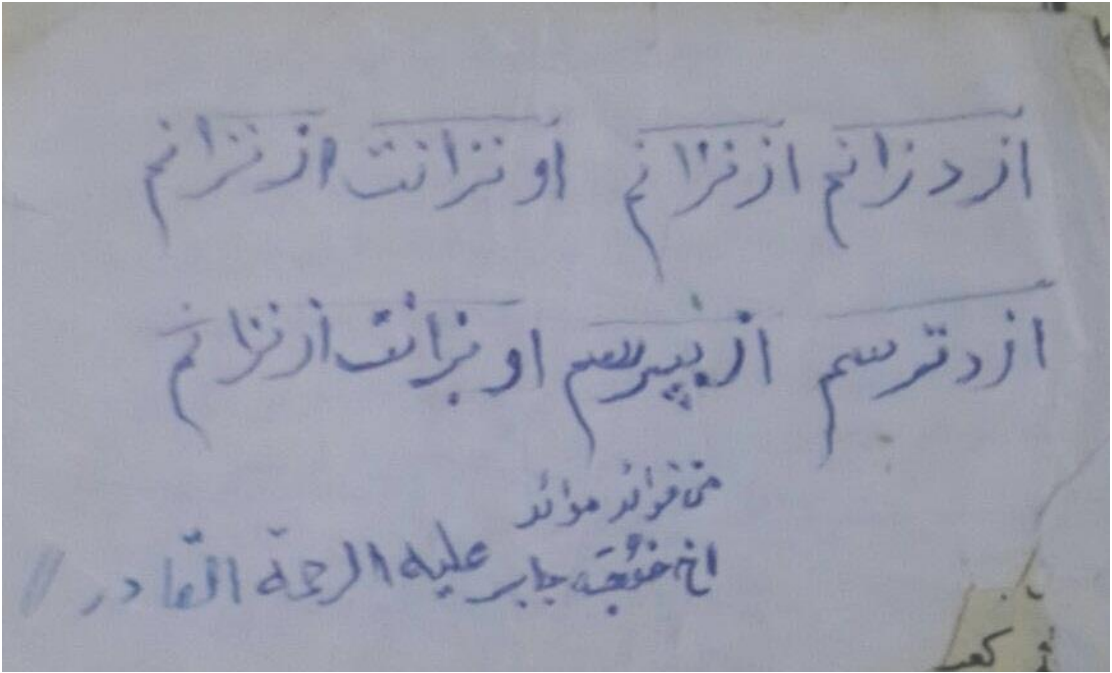 از دزانم از نزانم او نزانت از نزانم
از دترسم از نپیرسم او بزانت از نزانم
من فوائد موائد
اخ جابر علیه الرحمة القادر
کعب